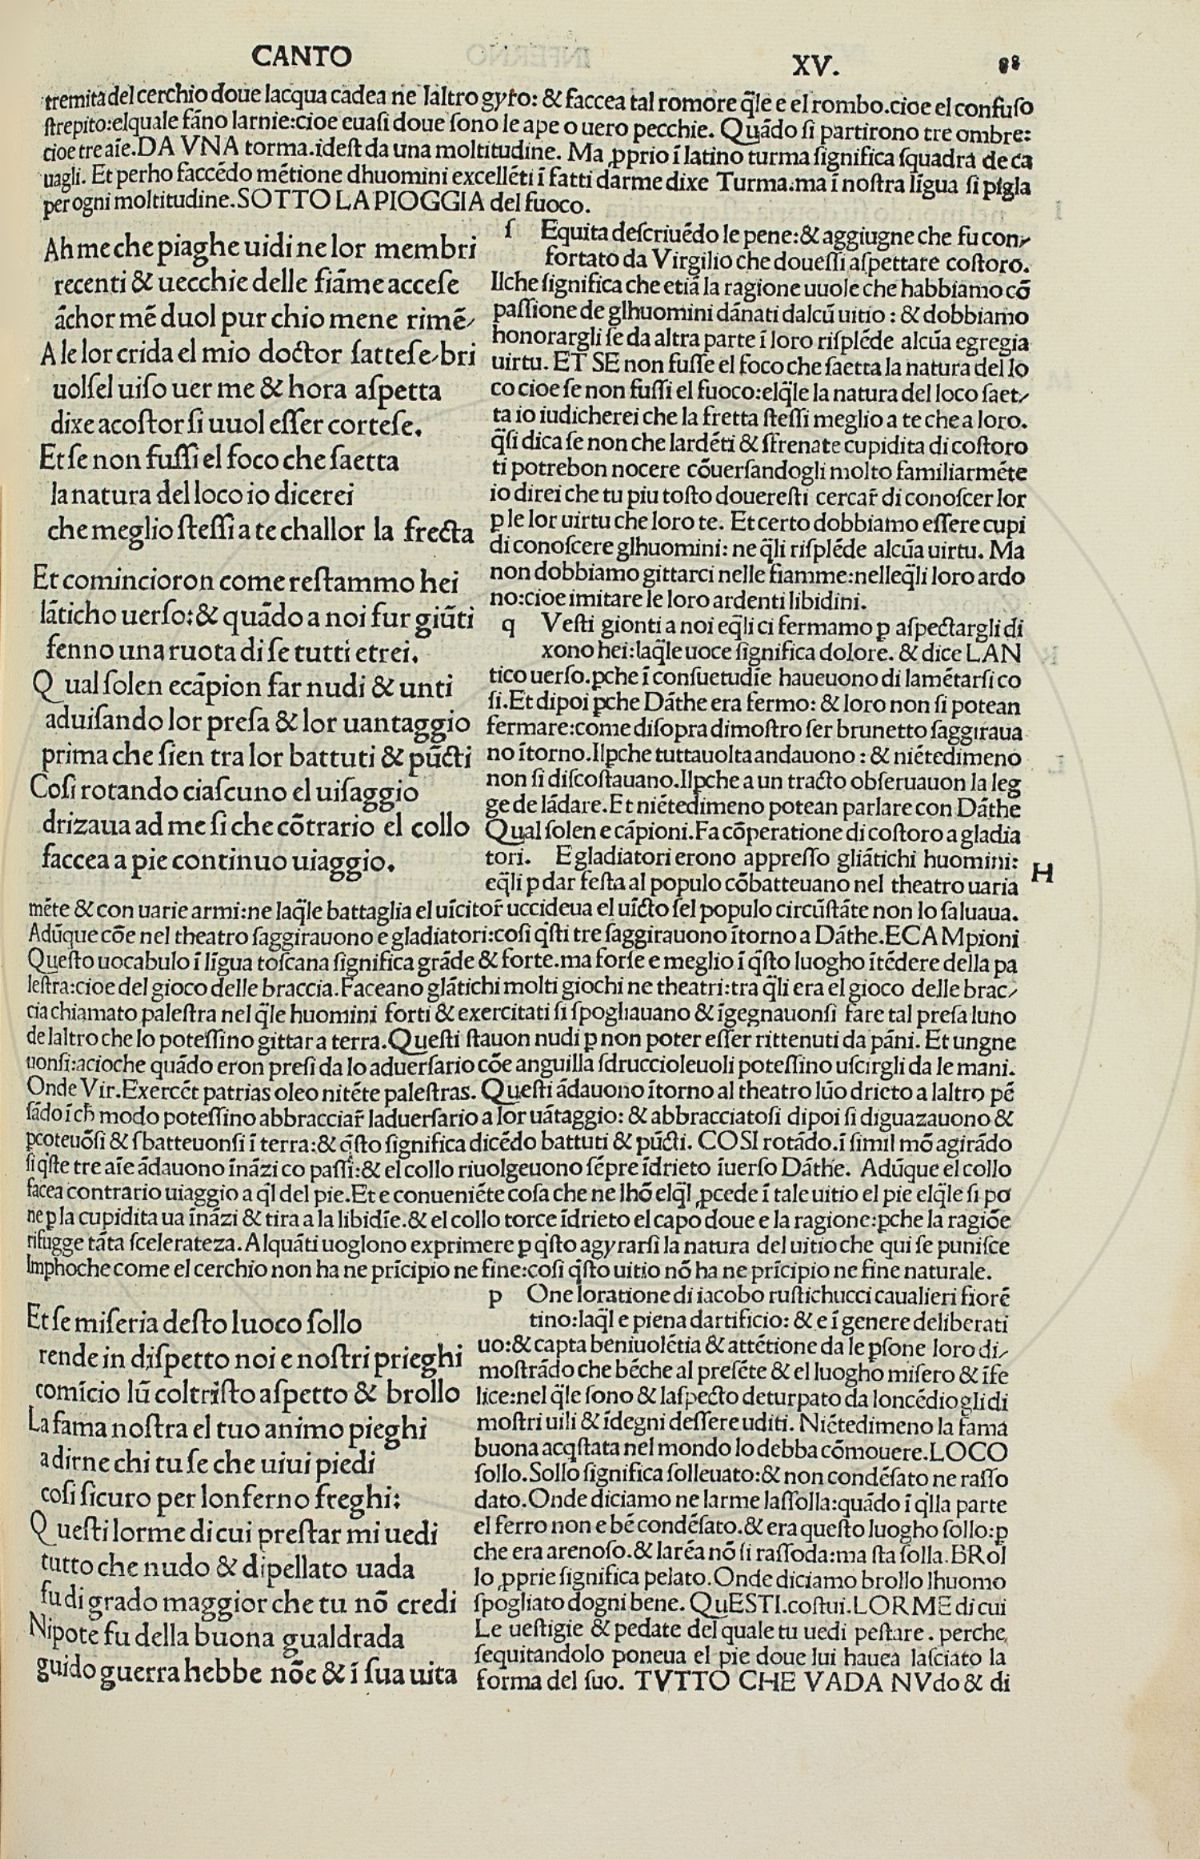 CANTO XV. 88
tremita del cerchio doue lacqua cadea ne laltro gyro: & faccea tal romore q̃le e el rombo.cioe el confuſo
ſtrepito:elquale fãno larnie:cioe cuaſi doue ſono le ape o uero pecchie. Quãdo ſi partirono tre ombre:
cioe tre aĩe.DA VNA torma.ideſt da una moltitudine. Ma ꝓprio ĩ latino turma ſignifica ſquadra de ca
uagli. Et perho faccẽdo mẽtione dhuomini excellẽti ĩ fatti darme dixe Turma:ma ĩ noſtra lĩgua ſi pĩgla
per ogni moltitudine.SOTTO LA PIOGGIA del fuoco.
Ah me che piaghe uidi ne lor membri
recenti & uecchie delle fiãme acceſe
ãchor mẽ duol pur chio mene rimẽ/
A le lor crida el mio doctor ſatteſe bri
uolſel uiſo uer me & hora aſpetta
dixe acoſtor ſi uuol eſſer corteſe.
Et ſe non fuſſi el foco che ſaetta
la natura del loco io dicerei
che meglio ſteſſi a te challor la frecta
Et comincioron come reſtammo hei
lãticho uerſo:& quãdo a noi fur giũti
fenno una ruota di ſe tutti etrei.
Q ual ſolen ecãpion far nudi & unti
aduiſando lor preſa & lor uantaggio
prima che ſien tra lor battuti & pũcti
Coſi rotando ciaſcuno el uiſaggio
drizaua ad me ſi che cõtrario el collo
faccea a pie continuo uiaggio.
ſ Equita deſcriuẽdo le pene:& aggiugne che fu con/
fortato da Virgilio che doueſſi aſpettare coſtoro.
Ilche ſignifica che etiã la ragione uuole che habbiamo cõ
paſſione de glhuomini dãnati dalcũ uitio : & dobbiamo
honorargli ſe da altra parte ĩ loro riſplẽde alcũa egregia
uirtu. ET SE non fuſſe el foco che ſaetta la natura del lo
co cioe ſe non fuſſi el fuoco:elq̃le la natura del loco ſaet/
ta io iudicherei che la fretta ſteſſi meglio a te che a loro.
q̃ſi dica ſe non che lardẽti & sfrenate cupidita di coſtoro
ti potrebon nocere cõuerſandogli molto familiarmẽte
io direi che tu piu toſto douereſti cercar̃ di conoſcer lor
ꝑ le lor uirtu che loro te. Et certo dobbiamo eſſere cupi
di conoſcere glhuomini: ne q̃li riſplẽde alcũa uirtu. Ma
non dobbiamo gittarci nelle fiamme:nelleq̃li loro ardo
no:cioe imitare le loro ardenti libidini.
q Veſti gionti a noi eq̃li ci fermamo ꝑ aſpectargli di
xono hei:laq̃le uoce ſignifica dolore. & dice LAN
tico uerſo.ꝑche ĩ conſuetudĩe haueuono di lamẽtarſi co
ſi.Et dipoi ꝑche Dãthe era fermo: & loro non ſi potean
fermare:come diſopra dimoſtro ſer brunetto ſaggiraua
no ĩtorno.Ilꝑche tuttauolta andauono : & niẽtedimeno
non ſi diſcoſtauano.Ilꝑche a un tracto obſeruauon la leg
ge de lãdare.Et niẽtedimeno potean parlare con Dãthe
Qual ſolen e cãpioni.Fa cõperatione di coſtoro a gladia
tori. E gladiatori erono appreſſo gliãtichi huomini:
eq̃li ꝑ dar feſta al populo cõbatteuano nel theatro uaria
H
mẽte & con uarie armi:ne laq̃le battaglia el uĩcitor̃ uccideua el uĩcto ſel populo circũſtãte non lo ſaluaua.
Adũque cõe nel theatro ſaggirauono e gladiatori:coſi q̃ſti tre ſaggirauono ĩtorno a Dãthe.ECAMpioni
Queſto uocabulo ĩ lĩgua toſcana ſignifica grãde & forte.ma forſe e meglio ĩ q̃ſto luogho ĩtẽdere della pa
leſtra:cioe del gioco delle braccia.Faceano glãtichi molti giochi ne theatri:tra q̃li era el gioco delle brac/
cia chiamato paleſtra nel q̃le huomini forti & exercitati ſi ſpogliauano & ĩgegnauonſi fare tal preſa luno
de laltro che lo poteſſino gittar a terra.Queſti ſtauon nudi ꝑ non poter eſſer rittenuti da pãni. Et ungne
uonſi:acioche quãdo eron preſi da lo aduerſario cõe anguilla ſdruccioleuoli poteſſino uſcirgli da le mani.
Onde Vir.Exercẽt patrias oleo nitẽte paleſtras. Queſti ãdauono ĩtorno al theatro lũo drieto a laltro pẽ
ſãdo ĩ ch̃ modo poteſſino abbracciar̃ laduerſario a lor uãtaggio: & abbracciatoſi dipoi ſi diguazauono &
ꝑcoteuõſi & ſbatteuonſi ĩ terra:& q̃ſto ſignifica dicẽdo battuti & pũcti. COSI rotãdo.ĩ ſimil mõ agirãdo
ſi q̃ſte tre aĩe ãdauono ĩnãzi co paſſi:& el collo riuolgeuono ſẽpre ĩdrieto ĩuerſo Dãthe. Adũque el collo
facea contrario uiaggio a q̃l del pie.Et e conueniẽte coſa che ne lhõ elq̃l ꝓcede ĩ tale uitio el pie elq̃le ſi po
ne ꝑ la cupidita ua ĩnãzi & tira a la libidĩe.& el collo torce ĩdrieto el capo doue e la ragione:ꝑche la ragiõe
rifugge tãta ſcelerateza.Alquãti uoglono exprimere ꝑ q̃ſto agyrarſi la natura del uitio che qui ſe puniſce
Imphoche come el cerchio non ha ne prĩcipio ne fine:coſi q̃ſto uitio nõ ha ne prĩcipio ne fine naturale.
Et ſe miſeria deſto luoco ſollo
rende in diſpetto noi e noſtri prieghi
comĩcio lũ col triſto aſpetto & brollo
La fama noſtra el tuo animo pieghi
a dirne chi tu ſe che uiui piedi
coſi ſicuro per lonferno freghi:
Q ueſti lorme di cui preſtar mi uedi
tutto che nudo & dipellato uada
fu di grado maggior che tu nõ credi
Nipote fu della buona gualdrada
guido guerra hebbe nõe & ĩ ſua uita
p One loratione di iacobo ruſtichucci caualieri fiorẽ
tino:laq̃l e piena dartificio: & e ĩ genere deliberati
uo:& capta beniuolẽtia & attẽtione da le ꝑſone loro di/
moſtrãdo che bẽche al preſẽte & el luogho miſero & ĩfe
lice:nel q̃le ſono & laſpecto deturpato da loncẽdio gli di
moſtri uili & ĩdegni deſſere uditi. Niẽtedimeno la fama
buona acq̃ſtata nel mondo lo debba cõmouere.LOCO
ſollo.Sollo ſignifica ſolleuato:& non condẽſato ne raſſo
dato.Onde diciamo ne larme laſſolla:quãdo ĩ q̃lla parte
el ferro non e bẽ condẽſato.& era queſto luogho ſollo:ꝑ
che era arenoſo.& larẽa nõ ſi raſſoda:ma ſta ſolla.BROl
lo ꝓprie ſignifica pelato.Onde diciamo brollo lhuomo
ſpogliato dogni bene. QuESTI.coſtui.LORME di cui
Le ueſtigie & pedate del quale tu uedi peſtare . perche
ſequitandolo poneua el pie doue lui hauea laſciato la
forma del ſuo. TVTTO CHE VADA NVdo & di